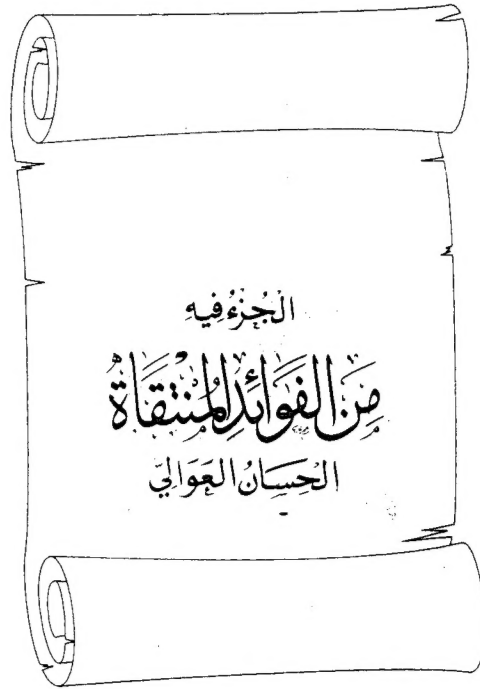 الْجُزْءُ فِيهِ
مِنَ الْفَوَائِدِ الْمُنْتَقَاةِ
الْحِسَانُ الْعَوَالِيّ